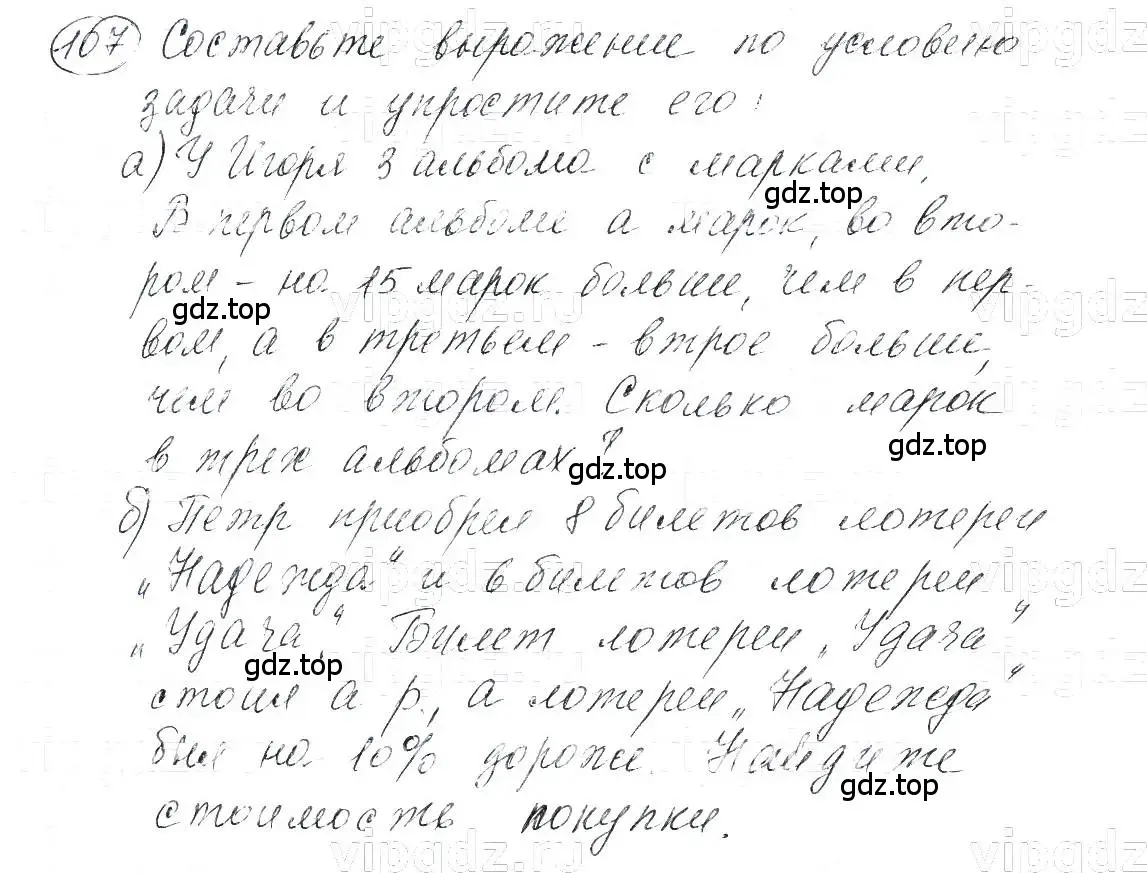 167 Составьте выражение по условию
задачи и упростите его:
а) У Игоря 3 альбома с марками.
gdz.top
В первом альбоме а марок, во вто-
ром - на 15 марок больше, чем в пер-
gdz.top
вом, а в третьем - втрое больше,
чем во втором. Сколько марок
gdz.top
в трех альбомах?
gdz.top
б) Петр приобрел 8 билетов лотереи
„Надежда“ и 6 билетов лотереи
„Удача“. Билет лотереи „Удача“
gdz.top
стоил а р., а лотереи „Надежда“
был на 10% дороже. Найдите
gdz.top
стоимость покупки.
vipgdz.ru